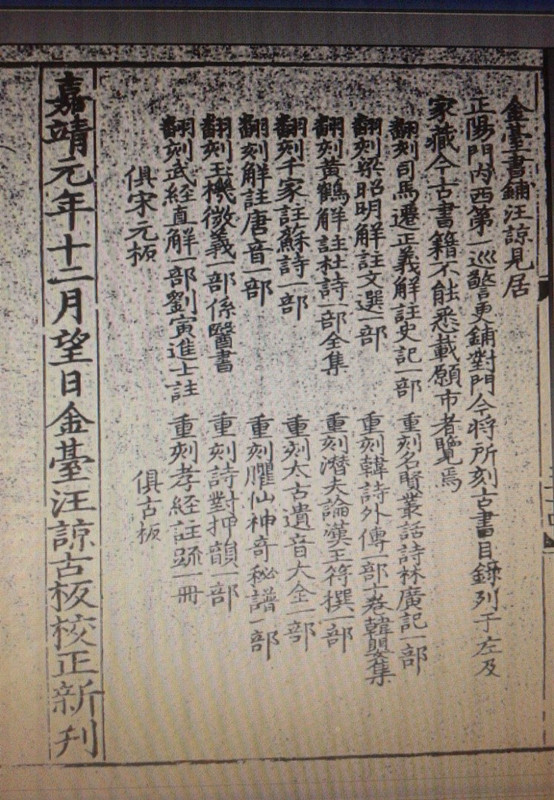 金臺書鋪汪諒見居
正陽門內西第一巡警更鋪對門今將所刻古書目錄列于左及
家藏今古書籍不能悉載願市者覽焉
翻刻司馬遷正義解註史記一部 重刻名賢叢話詩林廣記一部
翻刻梁昭明解註文選一部 重刻韓詩外傳一部十卷韓嬰集
翻刻黃鶴解註杜詩一部全集 重刻潛夫論漢王符撰一部
翻刻千家註蘇詩一部 重刻太古遺音大全一部
翻刻解註唐音一部 重刻臞仙神奇秘譜一部
翻刻玉機微義一部係醫書 重刻詩對押韻一部
翻刻武經直解一部劉寅進士註 重刻孝經註疏一冊
俱宋元板 俱古板
嘉靖元年十二月望日金臺汪諒古板校正新刊